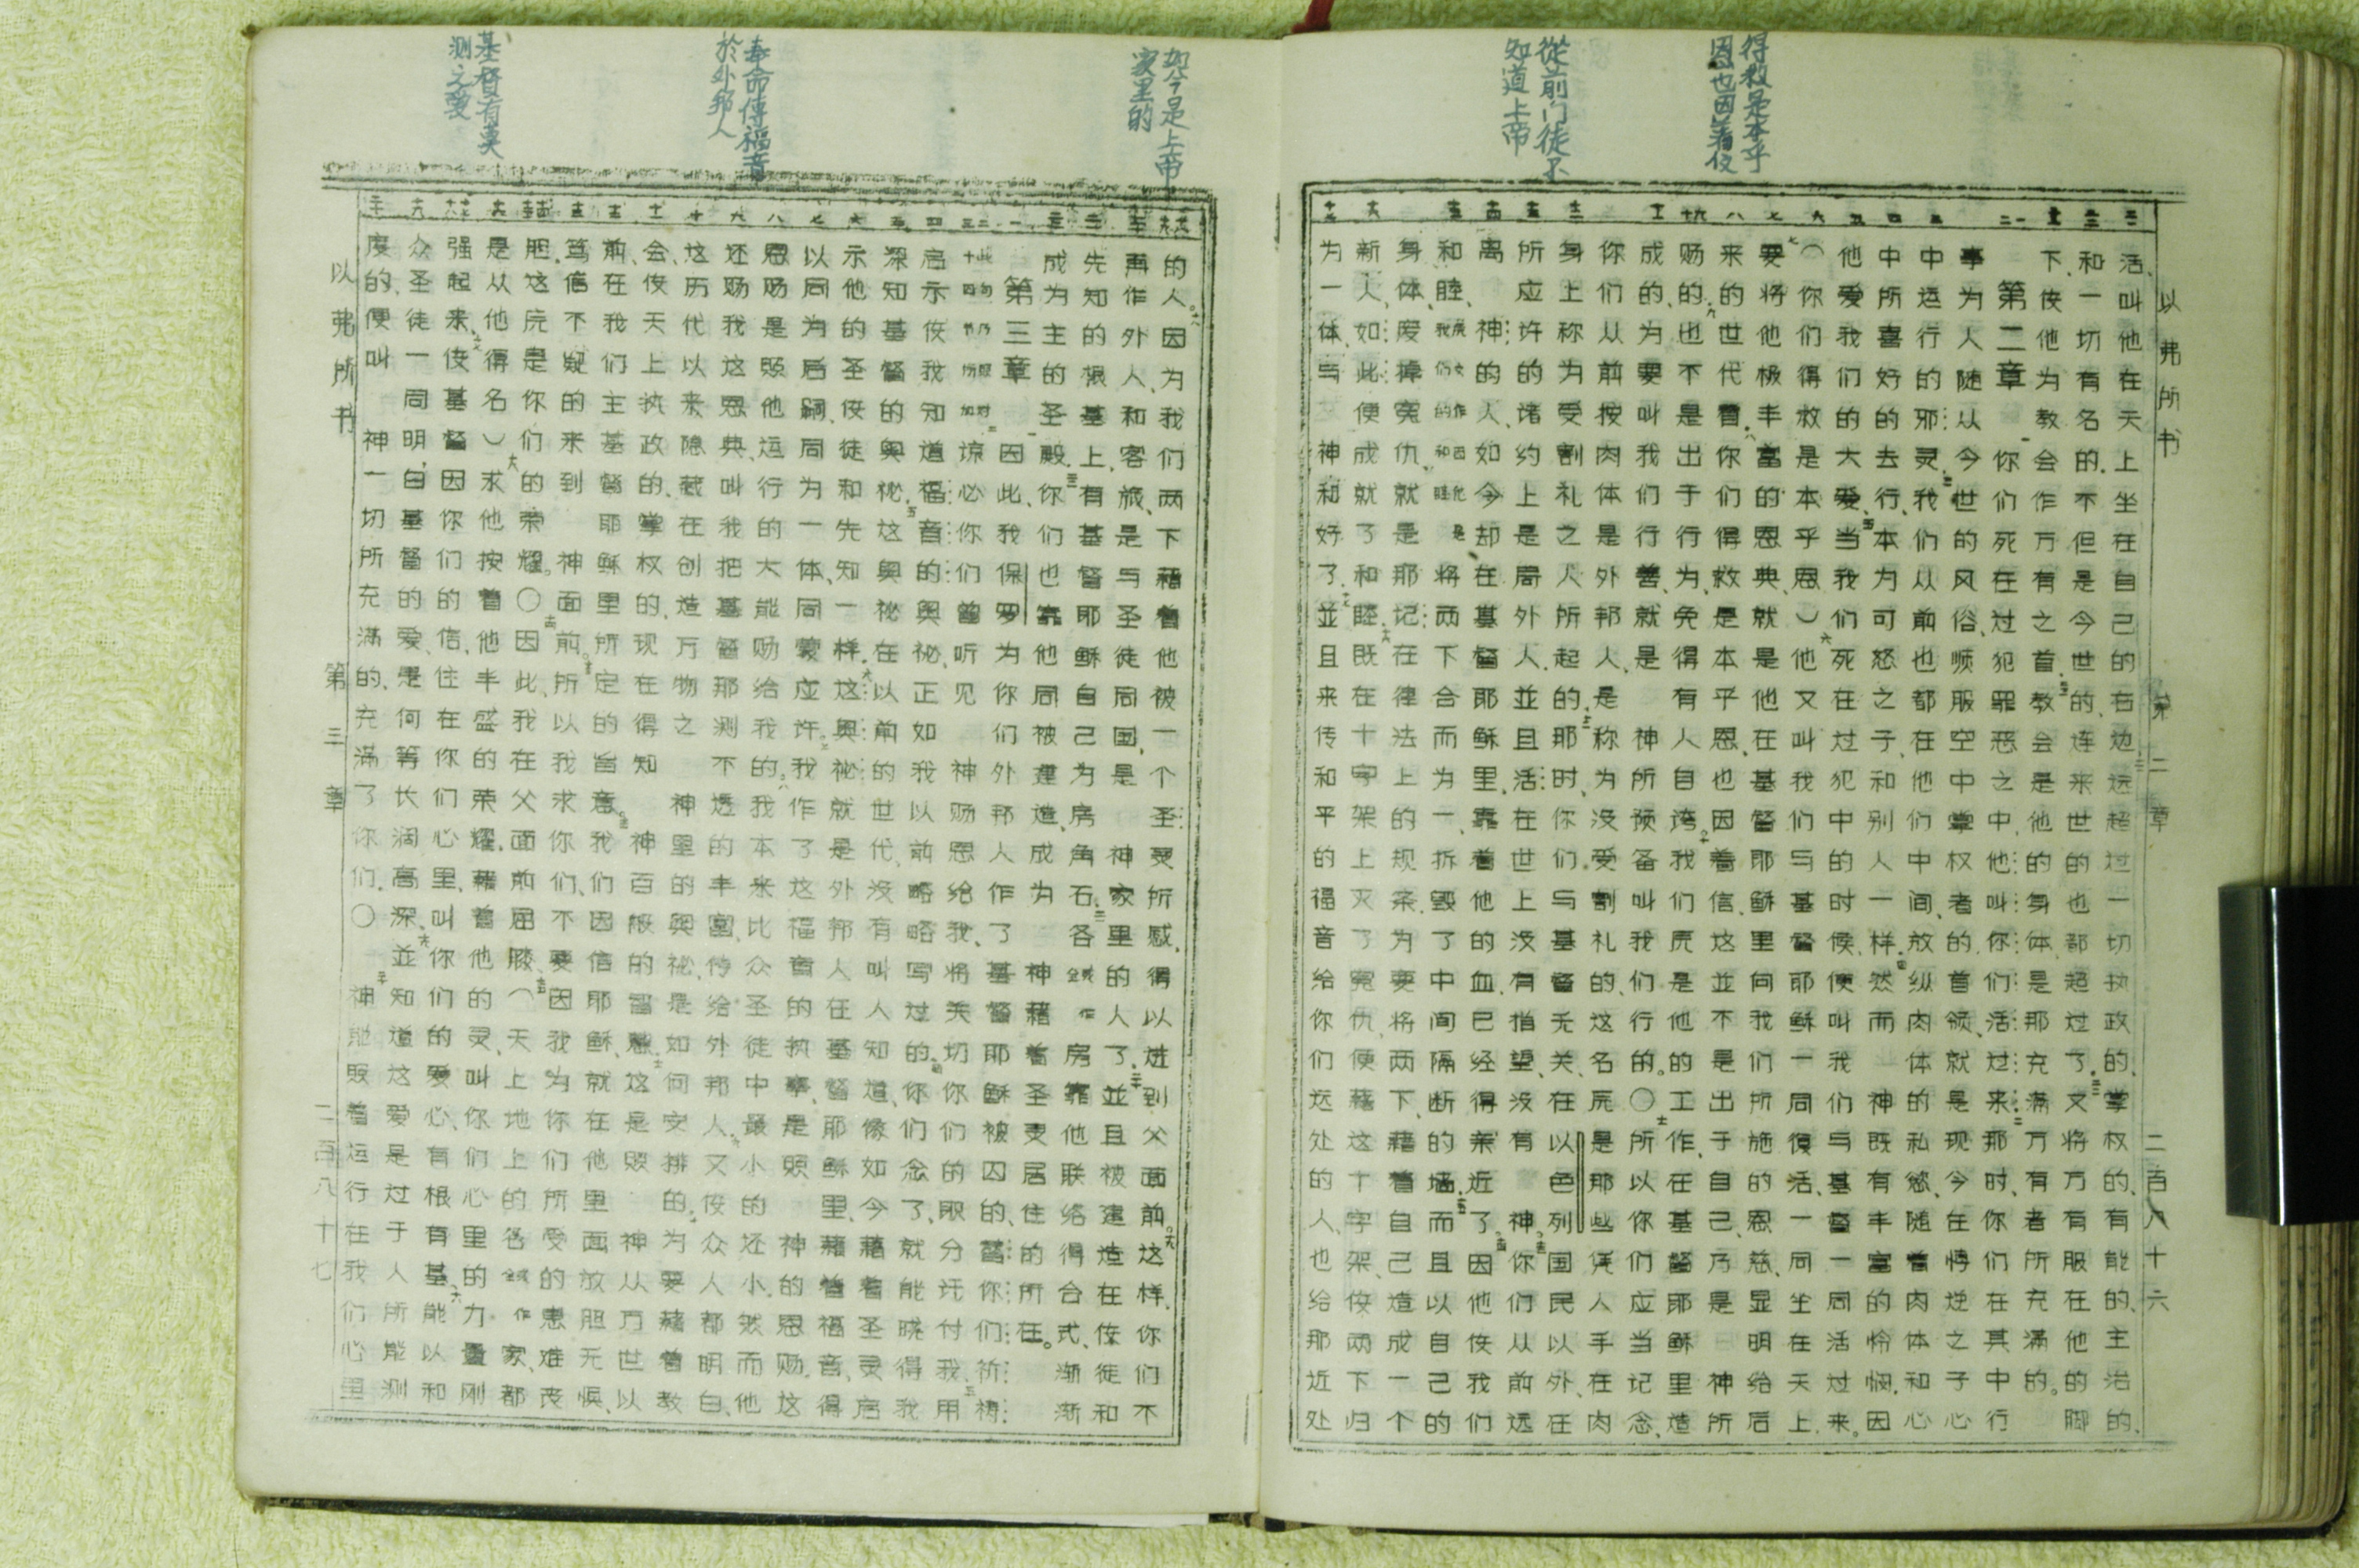 得救是本乎
因也因著信
從前门徒不
知道上帝
以弗所书 第二章 二百八十六
活、叫他在天上坐在自己的右边远超过一切执政的、掌权的、有能的、主治的、
和一切有名的.不但是今世的、连来世的也都超过了.又将万有服在他的脚
下、使他为教会作万有之首.教会是他的身体是那充满万有者所充满的。
第二章 你们死在过犯罪恶之中、他叫你们活过来.那时、你们在其中行
事为人随从今世的风俗、顺服空中掌权者的首领、就是现今在悖逆之子心
中运行的邪灵.我们从前也都在他们中间、放纵肉体的私慾、随着肉体和心
中所喜好的去行、本为可怒之子、和别人一样.然而 神既有丰富的怜悯.因
他爱我们的大爱、当我们死在过犯中的时候、便叫我们与基督一同活过来。
（你们得救是本乎恩）他又叫我们与基督耶稣一同復活、一同坐在天上.
要将他极丰富的恩典、就是他在基督耶稣里向我们所施的恩慈、显明给后
来的世代看.你们得救是本乎恩、也因着信、这並不是出于自己、乃是 神所
赐的、也不是出于行为、免得有人自誇.我们原是他的工作、在基督耶稣里造
成的、为要叫我们行善、就是 神所预备叫我们行的。〇所以你们应当记念、
你们从前按肉体是外邦人、是称为没受割礼的、这名原是那些凭人手在肉
身上称为受割礼之人所起的.那时、你们与基督无关、在以色列国民以外、在
所应许的诸约上是局外人.並且活在世上没有指望、没有 神.你们从前远
离 神的人、如今却在基督耶稣里、靠着他的血已经得亲近了.因他使我们
和睦、将两下合而为一、拆毁了中间隔断的墙.而且以自己的
身体、废掉冤仇、就是那记在律法上的规条、为要将两下、藉着自己造成一个
新人、如此便成就了和睦.既在十字架上灭了冤仇、便藉这十字架、使两下归
为一体、与 神和好了.並且来传和平的福音给你们远处的人、也给那近处
如今是上帝
家里的
奉命傳福音
於外邦人
基督有莫
测之愛
的人。因为我们两下藉着他被一个圣灵所感、得以进到父面前。这样、你们不
再作外人、和客旅、是与圣徒同国、是 神家里的人了、並且被建造在使徒和
先知的根基上、有基督耶稣自己为房角石.各房靠他联络得合式、渐渐
成为主的圣殿.你们也靠他同被建造、成为 神藉着圣灵居住的所在。
第三章 因此、我保罗为你们外邦人作了基督耶稣被囚的、替你们祈祷
谅必你们曾听见 神赐恩给我、将关切你们的职分讬付我、用
启示使我知道福音的奥祕、正如我以前略略写过的.你们念了、就能晓得我
深知基督的奥祕.这奥祕在以前的世代、没有叫人知道、像如今藉着圣灵启
示他的圣使徒和先知一样.这奥祕就是外邦人在基督耶稣里、藉着福音、得
以同为后嗣、同为一体、同蒙应许.我作了这福音的执事、是照 神的恩赐这
恩赐是照他运行的大能赐给我的.我本来比众圣徒中最小的还小.然而他
还赐我这恩典、叫我把基督那测不透的丰富、传给外邦人.又使众人都明白、
这历代以来隐藏在创造万物之 神里的奥祕、是如何安排的.为要藉着教
会、使天上执政的、掌权的、现在得知 神百般的智慧.这是照 神从万世以
前、在我们主基督耶稣里所定的旨意。我们因信耶稣、就在他里面放胆无惧、
笃信不疑的来到 神面前.所以我求你们、不要因我为你们所受的患难丧
胆.这原是你们的荣耀。〇因此、我在父面前屈膝、（天上地上的各家、都
是从他得名）求他按着他丰盛的荣耀、藉着他的灵、叫你们心里的力量刚
强起来、使基督因你们的信、住在你们心里、叫你们的爱心、有根有基.能以和
众圣徒一同明白基督的爱、是何等长阔高深、並知道这爱是过于人所能测
度的、便叫 神一切所充满的、充满了你们。〇 神能照着运行在我们心里
以弗所书 第三章 二百八十七